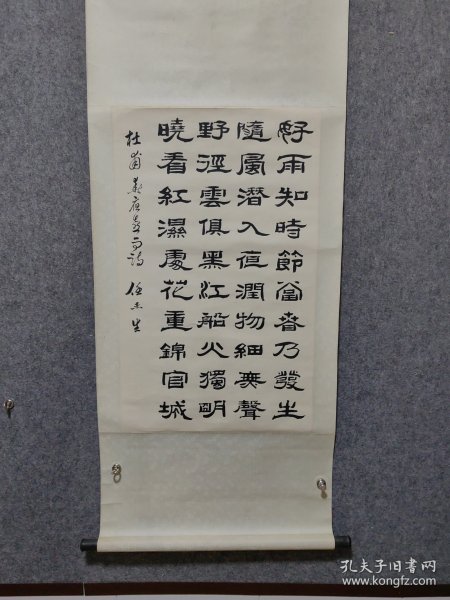 好雨知時節當春乃發生
隨風潛入夜潤物細無聲
野徑雲俱黑江船火獨明
曉看紅濕處花重錦官城
杜甫春夜喜雨詩 任
孔夫子旧书网
www.kongfz.com